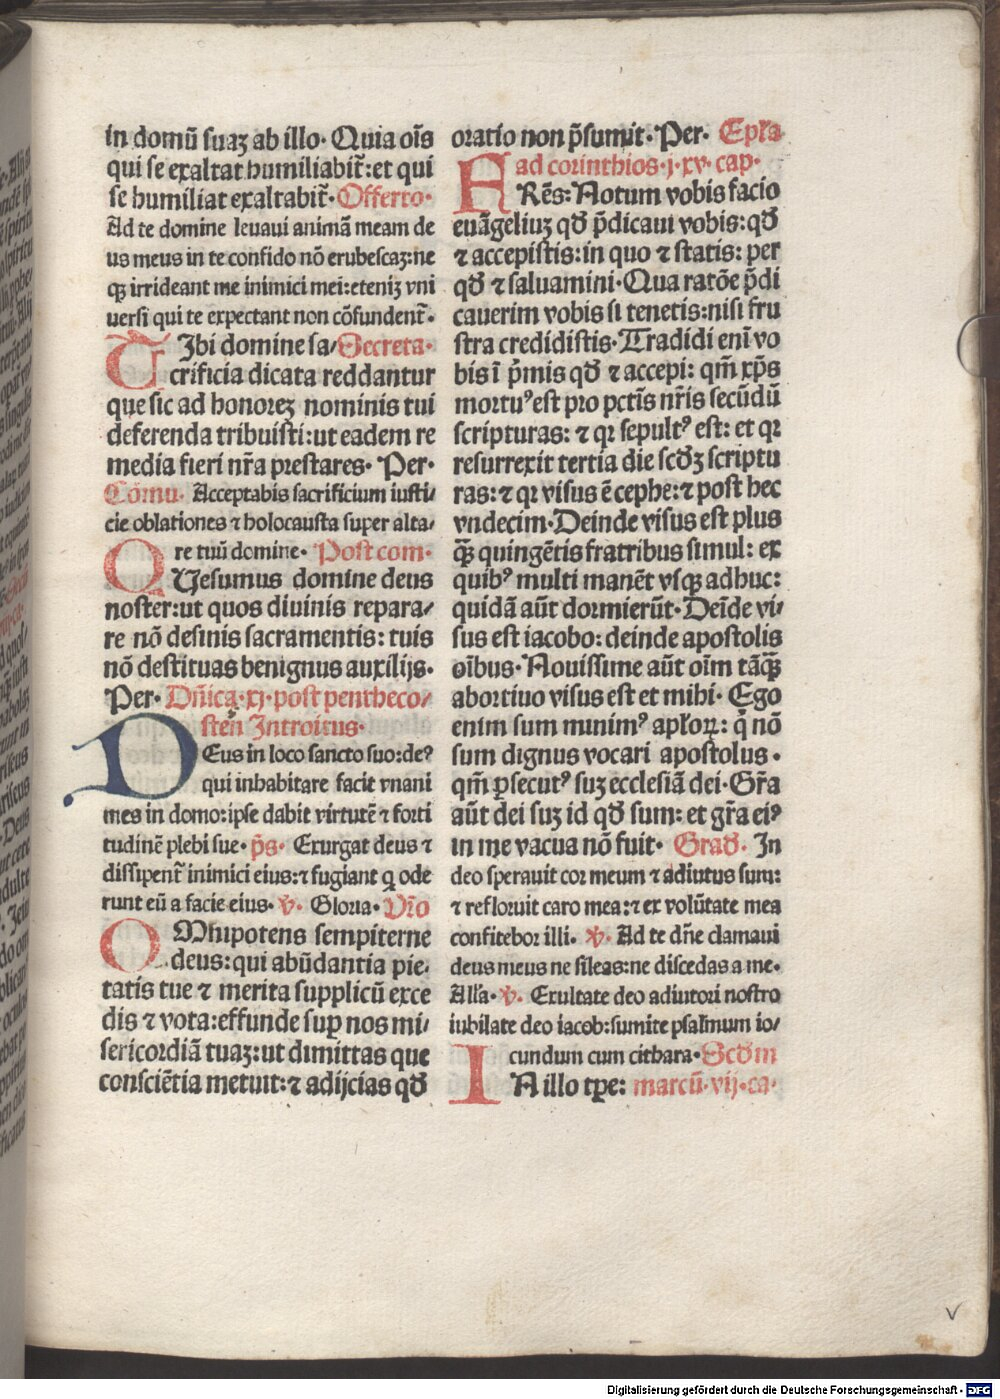 in domū suaꝫ ab illo· Quia oīs
qui se exaltat humiliabit̄:et qui
se humiliat exaltabit̄· Offerto·
Ad te domine leuaui animā meam de
us meus in te confido nō erubescaꝫ:ne
qꝫ irrideant me inimici mei:eteniꝫ vni
uersi qui te expectant non cōfundent̄·
Tibi domine sa/ Secreta·
crificia dicata reddantur
que sic ad honoreꝫ nominis tui
deferenda tribuisti:ut eadem re
media fieri nr̄a prestares· Per·
Cōmu· Acceptabis sacrificium iusti/
cie oblationes ⁊ holocausta super alta/
re tuū domine· Post com·
QUesumus domine deus
noster:ut quos diuinis repara/
re nō desinis sacramentis: tuis
nō destituas benignus auxilijs·
Per· Dn̄ica·xj·post pentheco/
sten Introitus·
DEus in loco sancto suo:deꝰ
qui inhabitare facit vnani
mes in domo:ipse dabit virtutē ⁊ forti
tudinē plebi sue· p̄s· Exurgat deus ⁊
dissipent̄ inimici eius:⁊ fugiant q̨ ode
runt eū a facie eius· v̄· Gloria· Or̄o
OMnipotens sempiterne
deus:qui abūdantia pie/
tatis tue ⁊ merita supplicū exce
dis ⁊ vota:effunde suꝑ nos mi/
sericordiā tuaꝫ:ut dimittas que
consciētia metuit:⁊ adijcias qđ
oratio non p̄sumit· Per· Ep̄la
ad corinthios·j·xv·cap·
FRēs: Notum vobis facio
euāgeliuꝫ qđ p̄dicaui vobis:qđ
⁊ accepistis:in quo ⁊ statis: per
qđ ⁊ saluamini· Qua ratōe p̄di
cauerim vobis si tenetis:nisi fru
stra credidistis· Tradidi enī vo
bis ī p̄mis qđ ⁊ accepi: qm̄ xp̄s
mortuꝰ est pro pctīs nr̄is secūdū
scripturas: ⁊ qꝛ sepultꝰ est: et qꝛ
resurrexit tertia die scđꝫ scriptu
ras:⁊ qꝛ visus ē cephe:⁊ post hec
vndecim· Deinde visus est plus
qꝫ̄ quingētis fratribus simul: ex
quibꝰ multi manēt vsqꝫ adhuc:
quidā aūt dormierūt· Deīde vi/
sus est iacobo: deinde apostolis
oībus· Nouissime aūt oīm tāqꝫ̄
abortiuo visus est et mihi· Ego
enim sum minimꝰ apl̄oꝝ: q̄ nō
sum dignus vocari apostolus·
qm̄ ꝑsecutꝰ suꝫ ecclesiā dei· Gr̄a
aūt dei suꝫ id qđ sum: et gr̄a eiꝰ
in me vacua nō fuit· Grad̄· In
deo sperauit cor meum ⁊ adiutus sum:
⁊ refloruit caro mea:⁊ ex volūtate mea
confitebor illi· v̄· Ad te dn̄e clamaui
deus meus ne sileas:ne discedas a me·
All̄a· v̄· Exultate deo adiutori nostro
iubilate deo iacob:sumite psalmum io/
cundum cum cithara· Scđm
IN illo tꝑe: marcū·vij·ca·
v
Digitalisierung gefördert durch die Deutsche Forschungsgemeinschaft - DFG